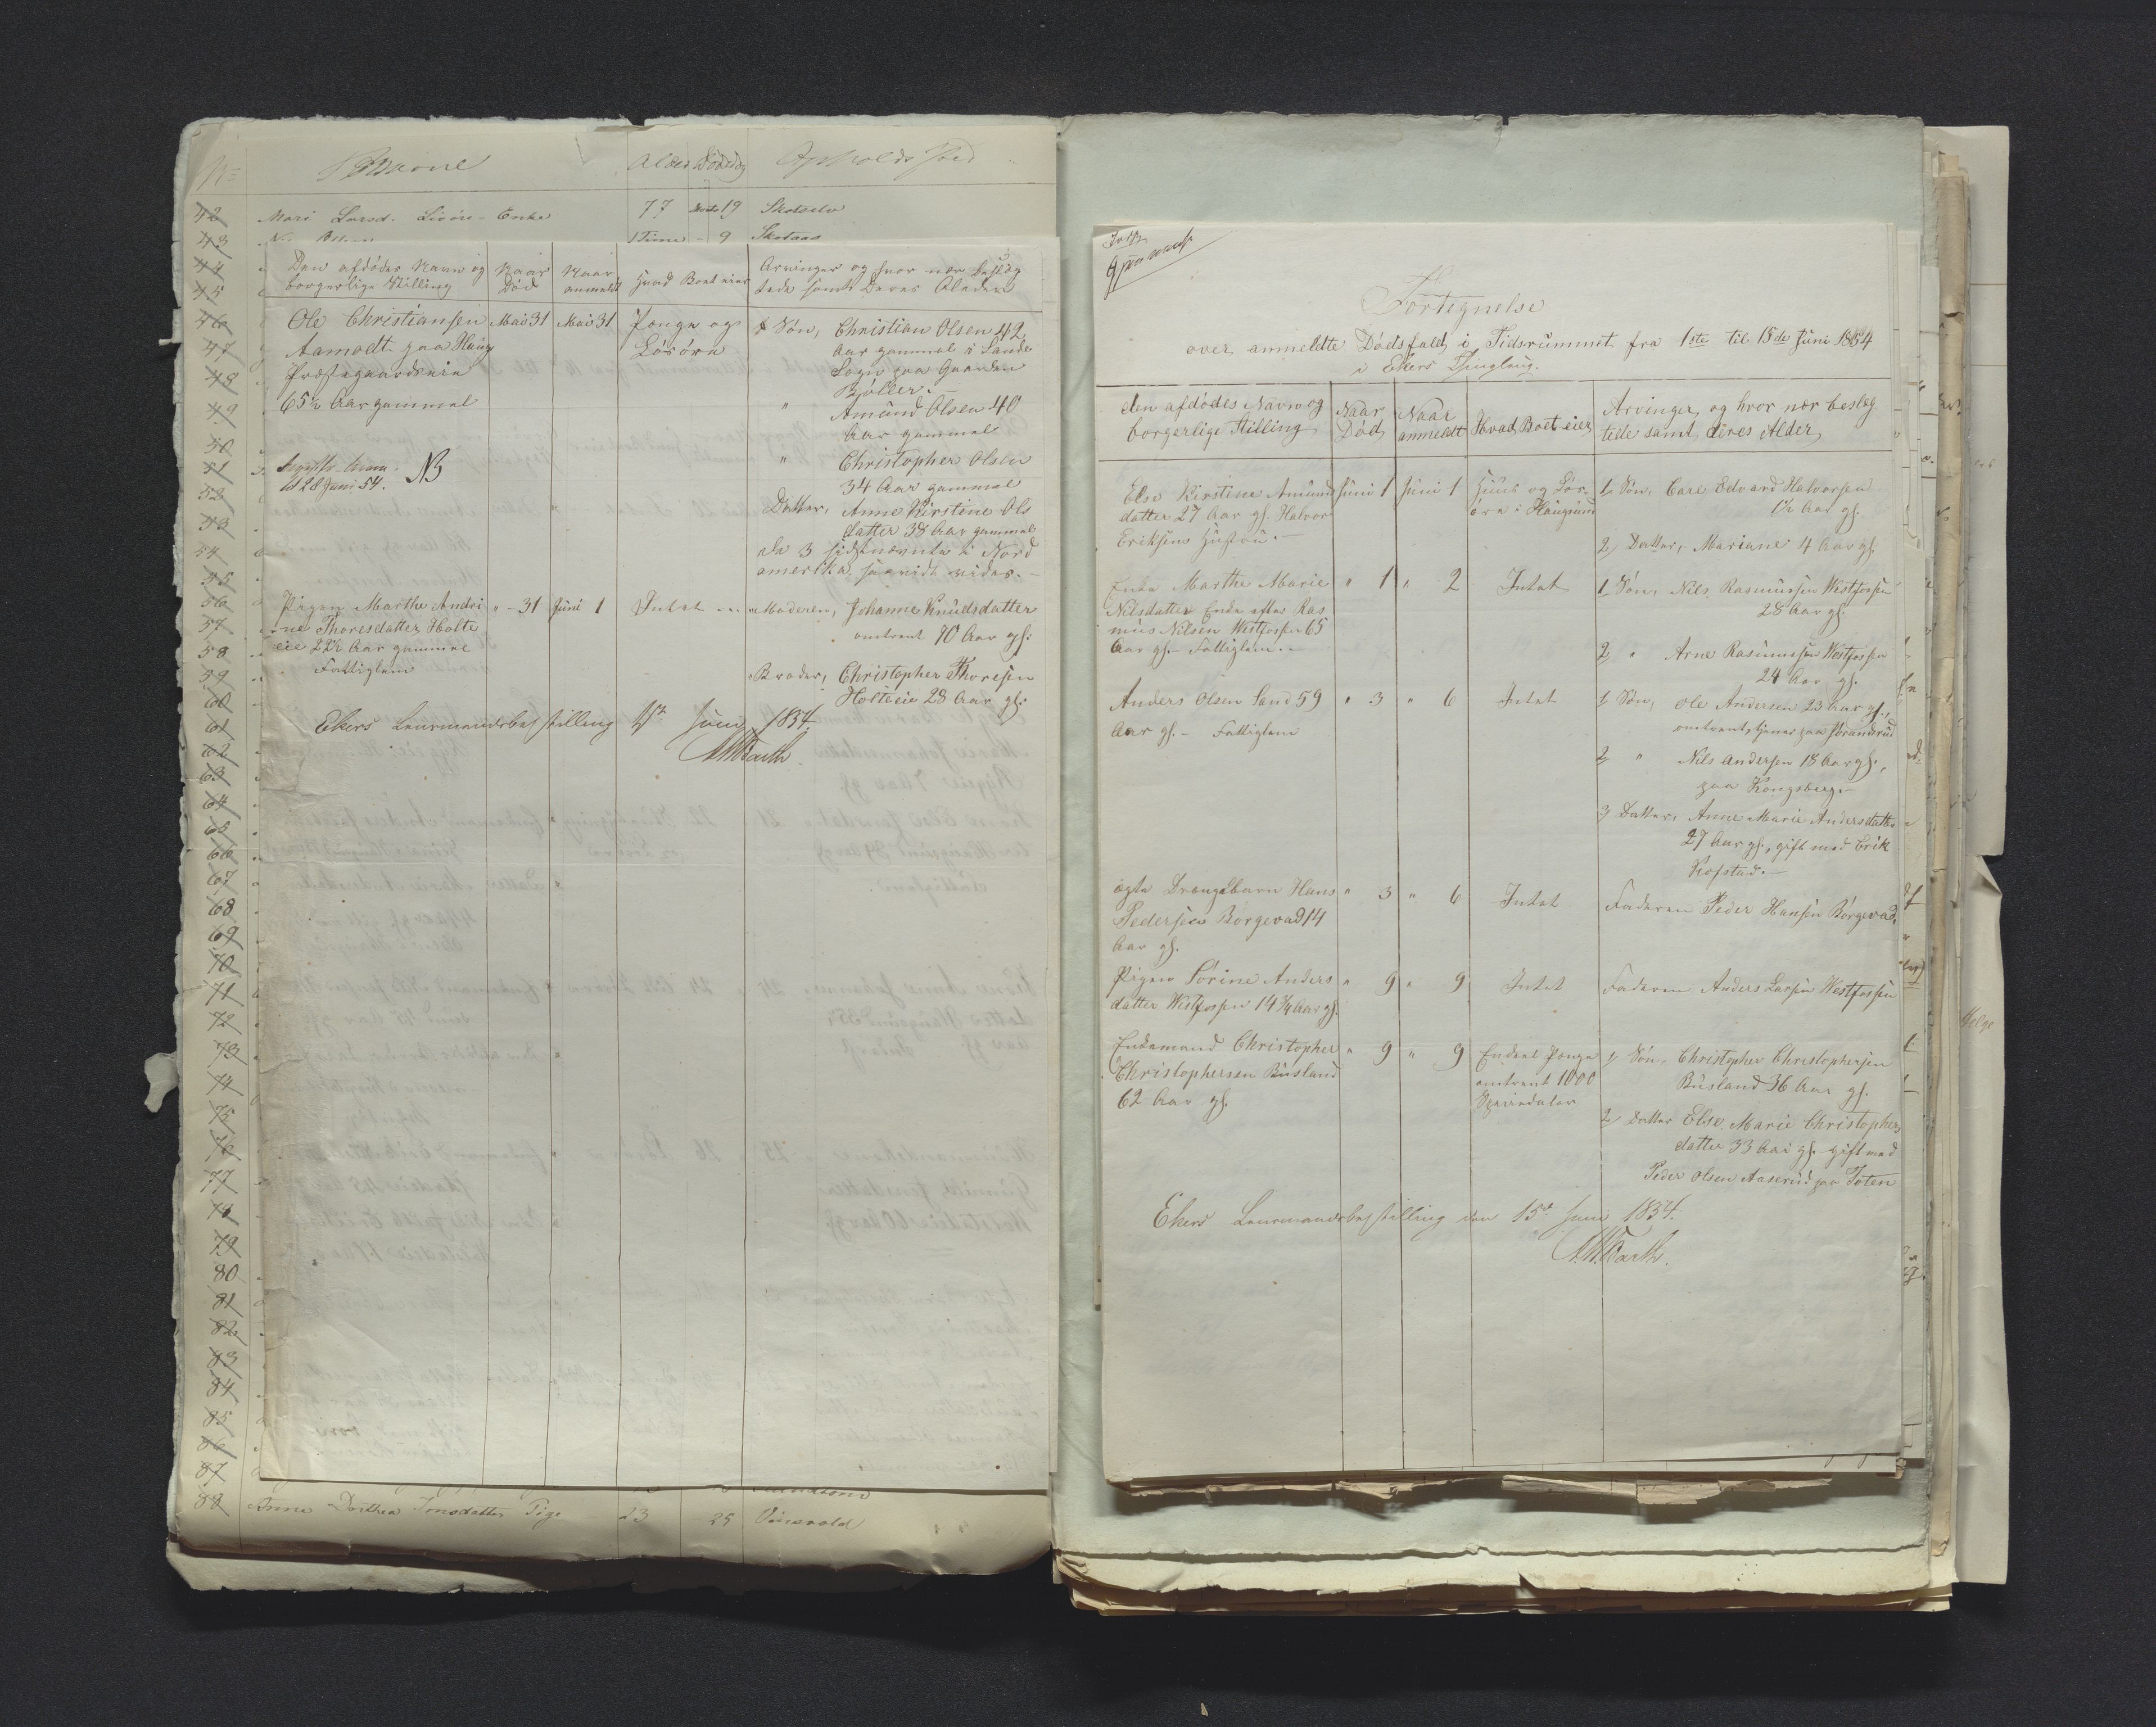 No Navne Alder Dødsdag Opholdssted
42 Mari Larsd. Enke 77 19 Skotselv
43 1 Time - 9 Skotaas
44
45
46
47
48
49
50
51
52
53
54
55
56
57
58
59
60
61
62
63
64
65
66
67
68
69
70
71
72
73
74
75
76
77
78
79
80
81
82
83
84
85
86
87
88 Anne Dorthea Tige 23 25
Den afdødes Navn og borgerlige Stilling
Naar Død
Naar anmeldt
Hvad Boet eier
Arvinger og hvor nær beslæg
tede samt Deres Alder
Ole Christiansen Mai 31 Mai 31 Penge og 1 Søn, Christian Olsen 42
Aamodt paa Haug Løsøre Aar gammel i Sande
Præstegaardseie Sogn paa Gaarden
65½ Aar gammel
" Amund Olsen 40
Aar gammel
" Christopher Olsen
34 Aar gammel
d 28 Juni 54. NB
Datter, Anne Kirstine Ols
datter 38 Aar gammel
de 3 sidstnævnte i Nord
amerika saavidt vides.-
Pigen Marthe Andri " - 31 Juni 1 Intet Moderen, Johanne Knudsdatter
ne Thoresdatter Holte omtrent 70 Aar gl.
eie 22½ Aar gammel
Fattiglem
Broder, Christopher Thoresen
Holteeie 28 Aar gl.
Ekers Lensmandsbestilling Juni 1854.
Barth.
Fortegnelse
over anmeldte Dødsfald i Tidsrummet fra 1ste til 15de Juni 1854
i Ekers Thinglaug.
den afdødes Navn og borgerlige Stilling
Naar Død
Naar anmeldt
Hvad Boet eier
Arvinger og hvor nær beslæg
tede samt deres Alder
Else Kirstine Amunds Juni 1 Juni 1 Huus og Løs- 1, Søn, Carl Edvard Halvorsen
datter 27 Aar gl. Halvor øre i Haugsund 1½ Aar gl.
Eriksens Hustru.-
2, Datter, Mariane 4 Aar gl.
Enke Marthe Marie " 1 " 2 Intet 1, Søn, Nils Rasmussen Westfossen
Nilsdatter Enke efter Ras 28 Aar gl.
mus Nilsen Westfossen 65
Aar gl.- Fattiglem.-
2, " Arne Rasmussen Westfossen
24 Aar gl.
Anders Olsen Sand 59 " 3 " 6 Intet 1, Søn, Ole Andersen 23 Aar gl.,
Aar gl.- Fattiglem omtrent, tjener paa
2, " Nils Andersen 18 Aar gl.,
paa Kongsberg.-
3, Datter, Anne Marie Andersdatter
27 Aar gl., gift med Erik
Kofstad.-
ægte Drengebarn Hans " 3 " 6 Intet Faderen Peder Hansen Borgevad.
Pedersen Borgevad 14
Aar gl.
Pigen Sørine Anders " 9 " 9 Intet Faderen Anders Larsen Westfossen
datter Westfossen 14¾ Aar gl.
Enkemand Christopher " 9 " 9 Endeel Penge 1, Søn, Christopher Christophersen
Christophersen Busland omtrent 1000 Busland 36 Aar gl.
62 Aar gl. Speciedaler
2, Datter Else Marie Christophers
datter 33 Aar gl. gift med
Peder Olsen Aaserud paa Toten
Ekers Lensmandsbestilling den 15de Juni 1854.
Barth.